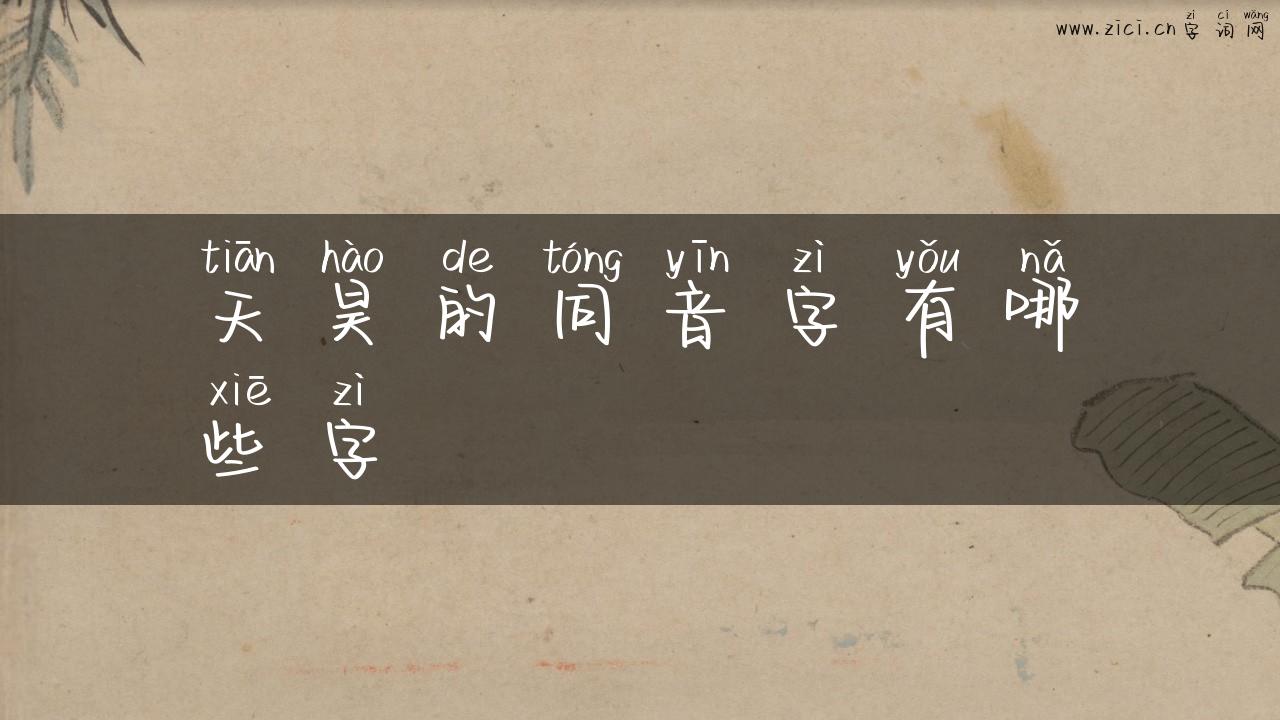 zì cí wǎng
www.zici.cn 字词网
tiān hào de tóng yīn zì yǒu nǎ
天昊的同音字有哪
xiē zì
些字